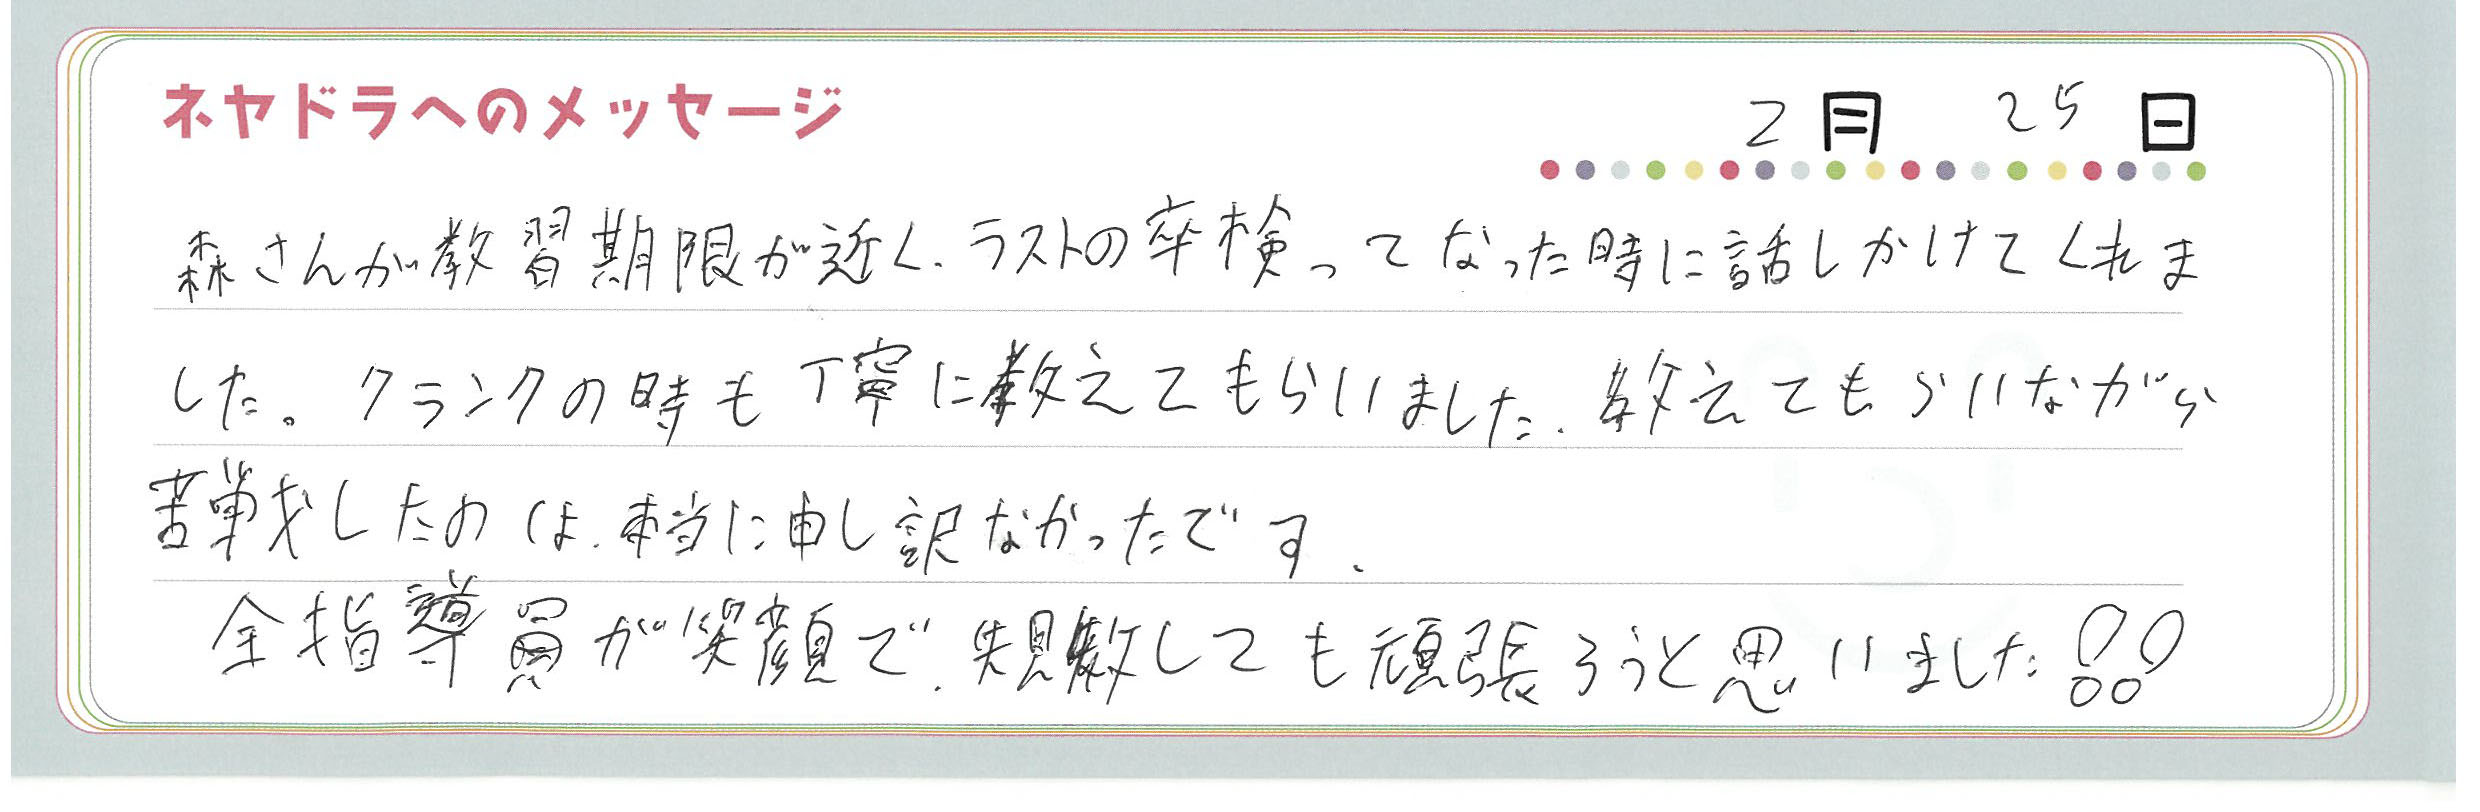 ネヤドラへのメッセージ
2月 25日
森さんが教習期限が近く、ラストの卒検ってなった時に話しかけてくれま
した。クランクの時も丁寧に教えてもらいました。教えてもらいながら
苦戦したのは、本当に申し訳なかったです。
全指導員が笑顔で、失敗しても頑張ろうと思いました!!